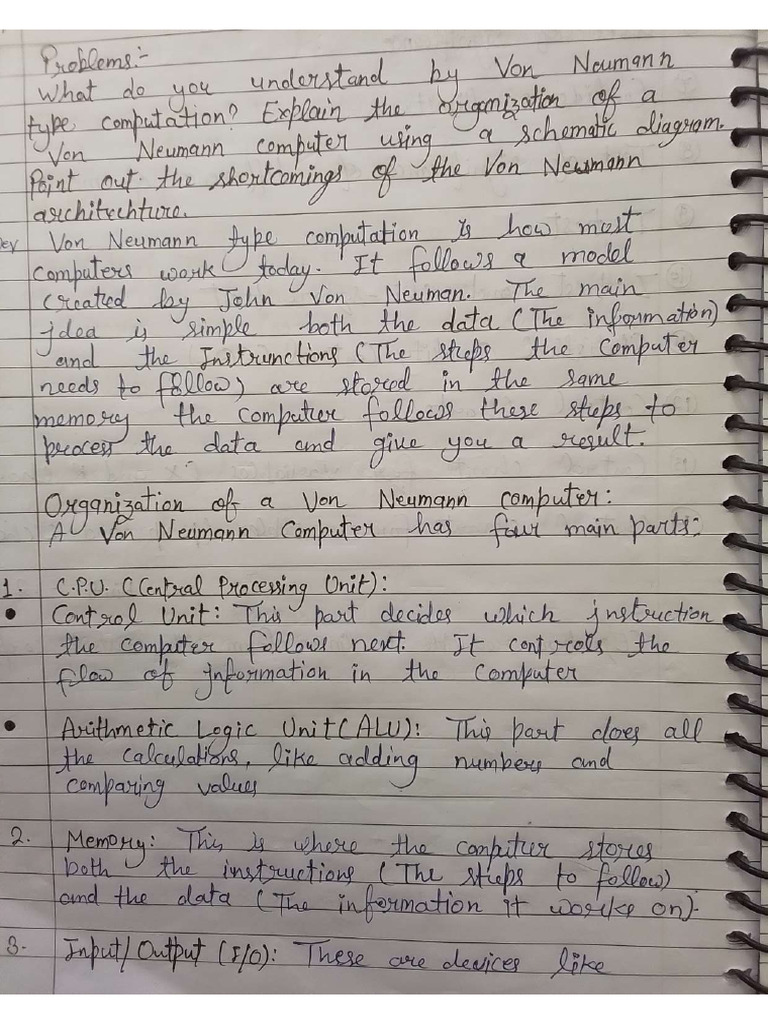 Problems:-
What do you understand by Von Neumann
type computation? Explain the organization of a
Von Neumann computer using a schematic diagram.
Point out the shortcomings of the Von Neumann
architechture.
Von Neumann type computation is how most
computers work today. It follows a model
created by John Von Neuman. The main
idea is simple both the data (The information)
and the Instrunctions (The steps the computer
needs to follow) are stored in the same
memory the computer follows these steps to
process the data and give you a result.
Organization of a Von Neumann computer:
A Von Neumann Computer has four main parts:
1. C.P.U. (Central Processing Unit):
• Control Unit: This part decides which instruction
the computer follows next. It controls the
flow of information in the computer
• Arithmetic Logic Unit (ALU): This part does all
the calculations, like adding numbers and
comparing values
2. Memory: This is where the computer stores
both the instructions (The steps to follow)
and the data (The information it works on).
3. Input/Output (I/O): These are devices like